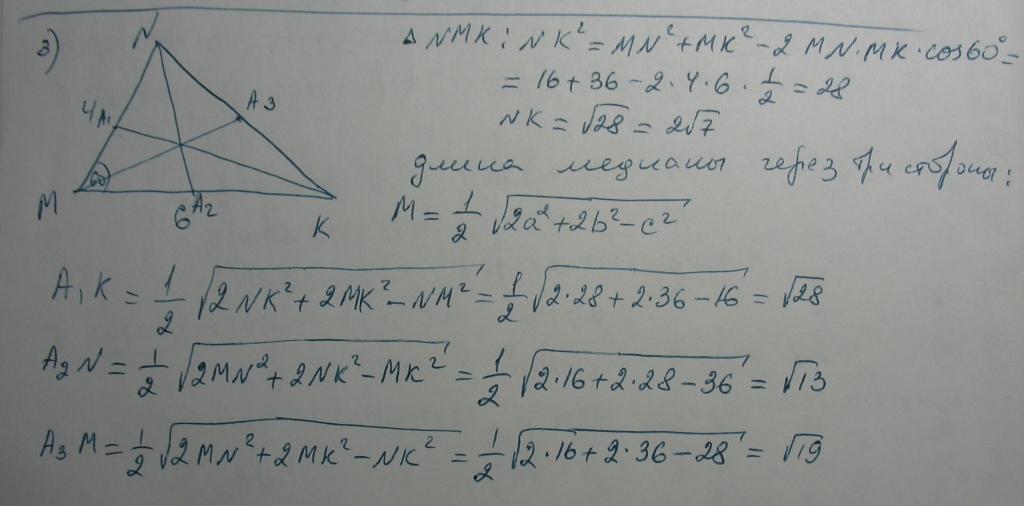 3)
N
4 A₁
A3
60°
M
6 A₂
K
Δ NMK : NK² = MN² + MK² - 2 MN · MK · cos60° =
= 16 + 36 - 2 · 4 · 6 · 1/2 = 28
NK = √28 = 2√7
длина медианы через три стороны :
M = 1/2 √(2a² + 2b² - c²)
A₁K = 1/2 √(2NK² + 2MK² - NM²) = 1/2 √(2·28 + 2·36 - 16) = √28
A₂N = 1/2 √(2MN² + 2NK² - MK²) = 1/2 √(2·16 + 2·28 - 36) = √13
A₃M = 1/2 √(2MN² + 2MK² - NK²) = 1/2 √(2·16 + 2·36 - 28) = √19